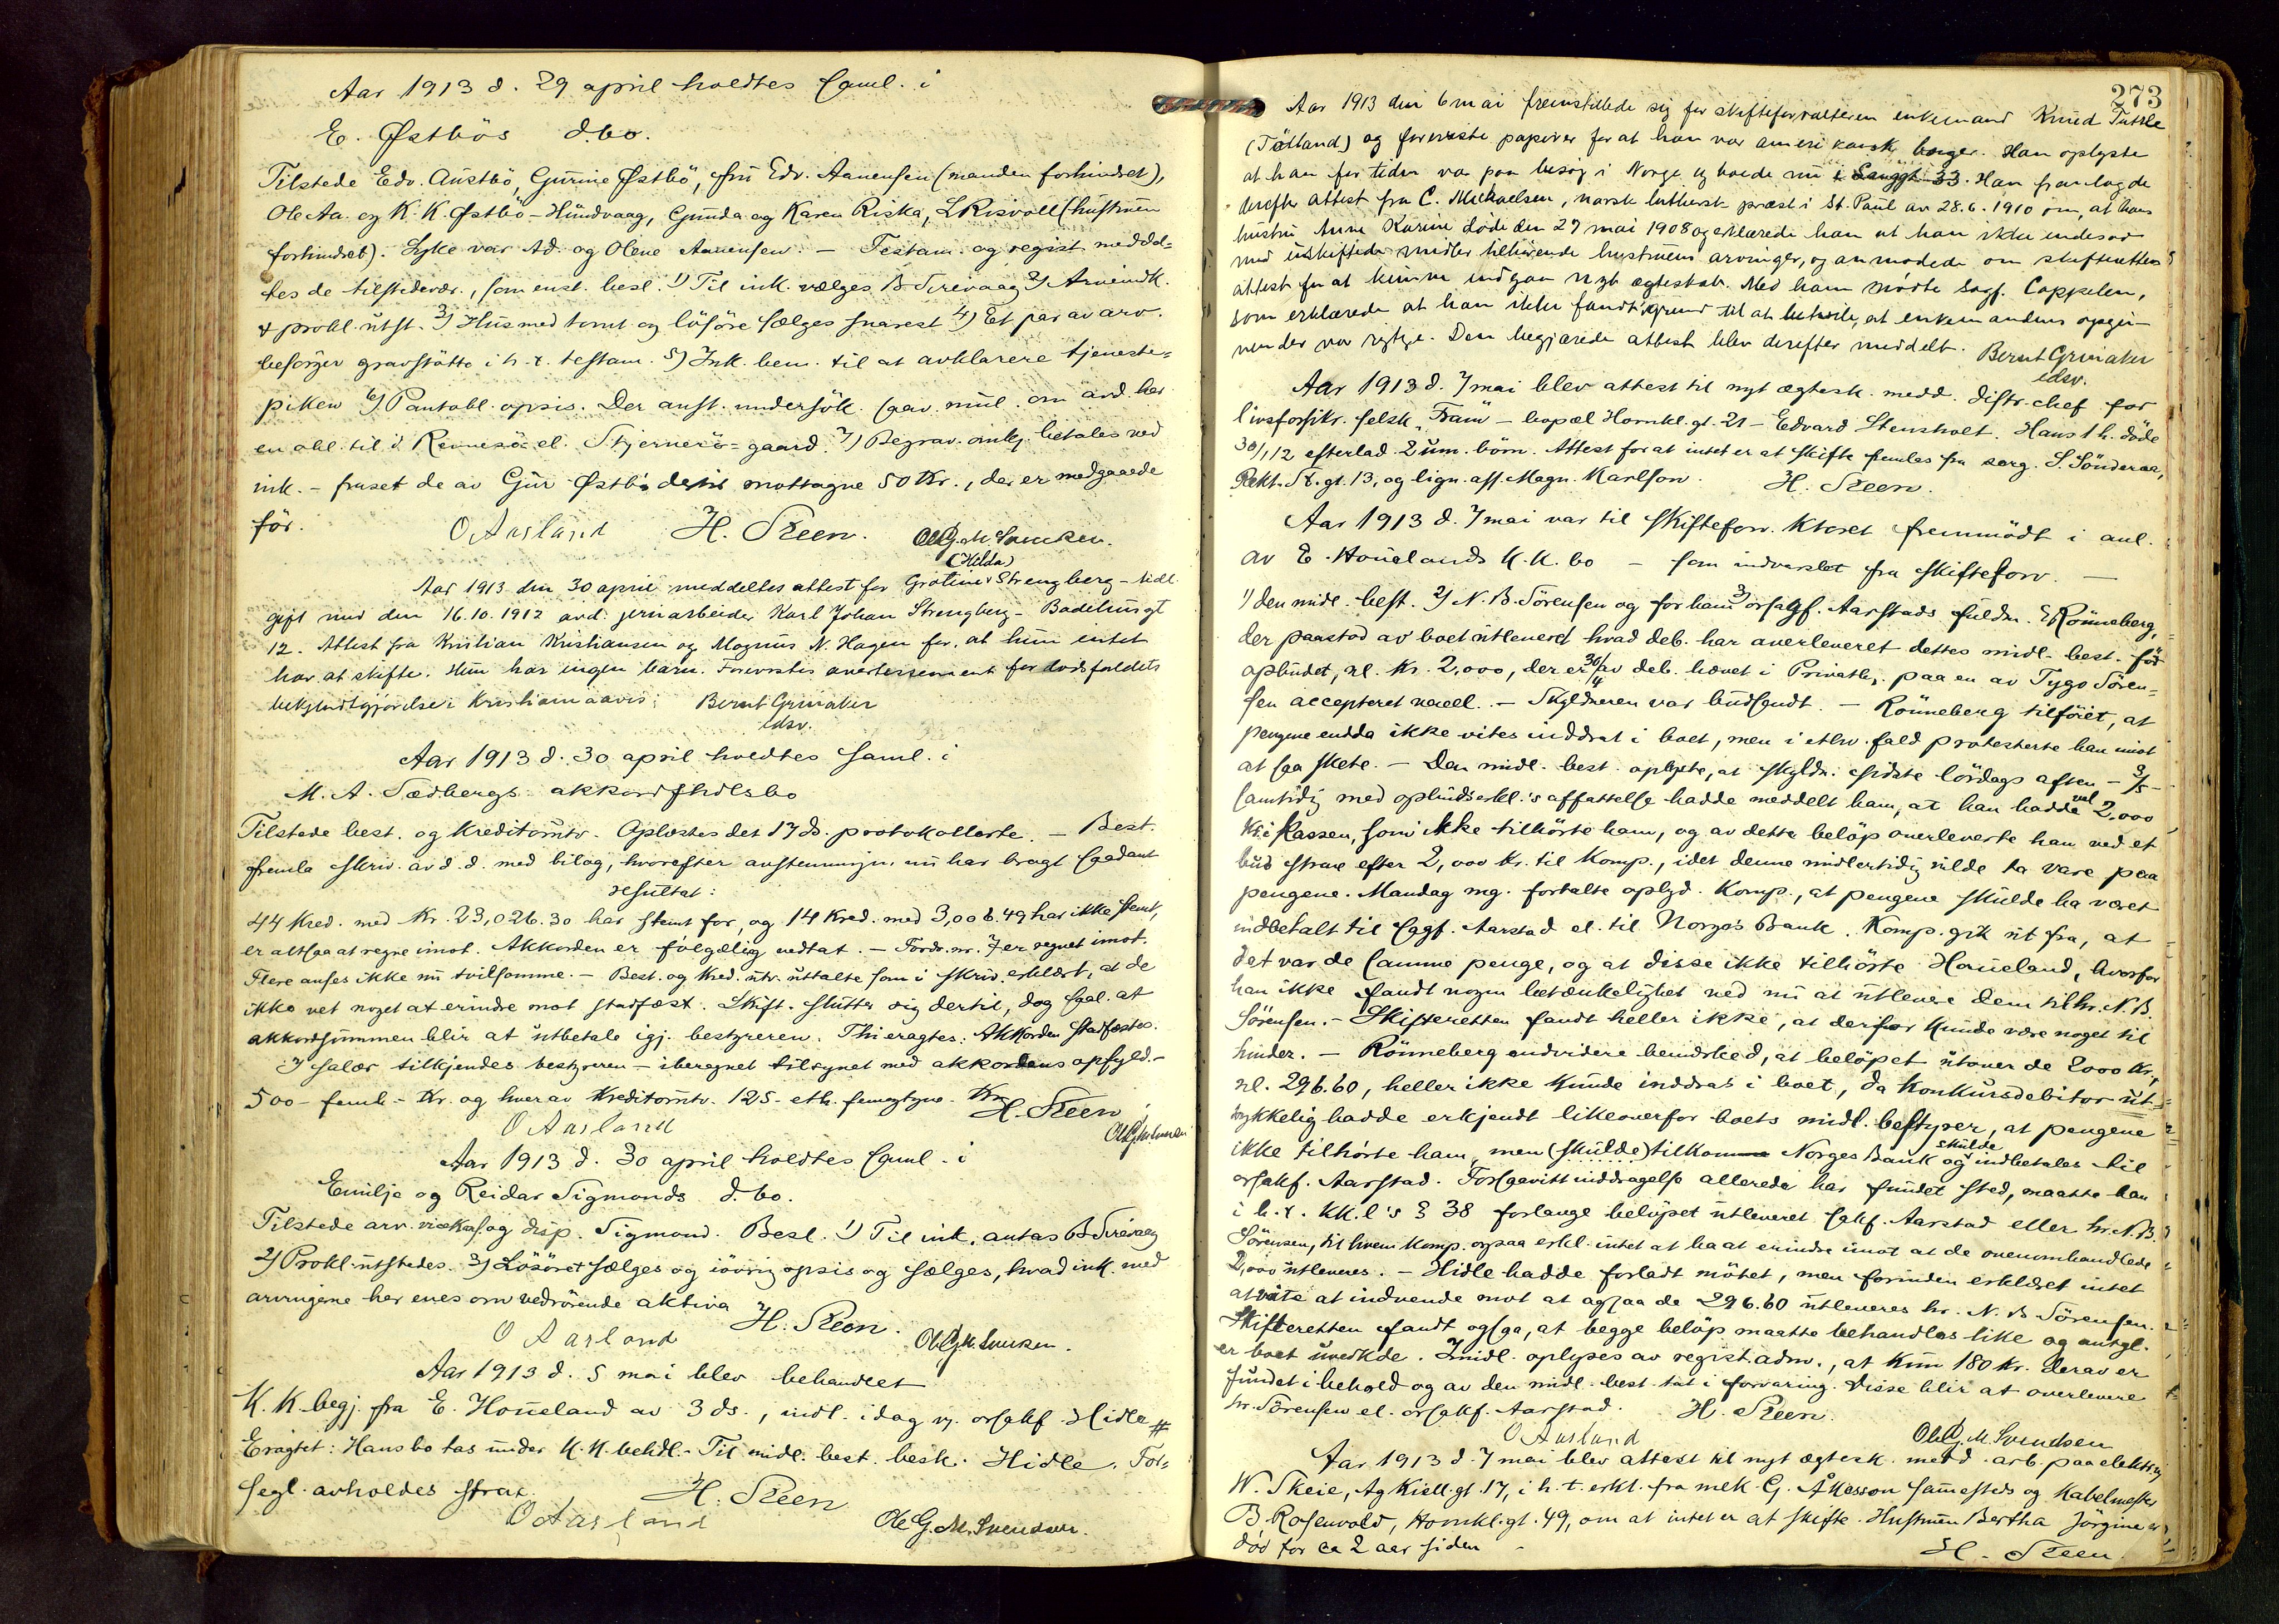 Aar 1913 d. 29 april holdtes saml. i
E. Østbös d.bo.
Tilstede Edv. Austbö, Gurine Østbö, fru Edv. Aanensen (manden forhindret),
Ole Aa. og K. K. Østbö - Hundvaag, Gunda og Karen Riska, L Risvoll (hustruen
forhindret). Syke var Ad. og Olene Aanensen - Testam. og regist. meddel-
tes de tilstedevær., som enst. besl. 1) Til ink. vælges B Sirevaag 2) Arveindk.
& prokl. utst. 3) Hus med tomt og lösöre sælges snarest 4) Et par av arv.
besörger gravstötte i h. t. testam. 5) Ink. bem. til at avklarere tjeneste-
piken 6) Pantobl. opsis. Der anst. undersök. saav. mul. om avd. har
en obl. til i Rennesö el. Stjernerö-gaard. 7) Begrav. omk. betales ved
ink. - fraset de av Gur. Østbö mottagne 50 Kr., der er medgaaede
för.
O Aasland H. Steen. Ole G. M. Svendsen.
(Hilda)
Aar 1913 den 30 april meddeltes attest for Grotine Strengberg - tidl.
gift med den 16.10.1912 avd. jernarbeider Karl Johan Strengberg - Badehusgt
12. Attest fra Kristian Kristiansen og Magnus N. Hagen for, at hun intet
har at skifte. Hun har ingen barn. Forevistes avertissement for dödsfaldets
bekjendtgjörelse i Kristianiaavis. Bernt Grinaker
edsv.
Aar 1913 d. 30 april holdtes saml. i
M. A. Sædbergs akkordfhdlsbo
Tilstede best. og kreditorutv. Oplæstes det 17 ds. protokollerte. - Best.
fremla skriv. av d. d. med bilag, hvorefter avstemningen nu har bragt saadant
resultat:
44 kred. med Kr. 23,026.30 har stemt for, og 14 kred. med 3,006.49 har ikke stemt,
er altsaa at regne imot. Akkorden er fölgelig vedtat. - Fordr. nr. 7 er regnet imot.
Flere anses ikke nu tvilsomme. - Best. og kred. utv. uttalte som i skriv. erklært, at de
ikke vet noget at erindre mot stadfæst. Skift. slutter sig dertil, dog saal. at
akkordsummen blir at utbetale igj. bestyreren. Thi eragtes: Akkorden stadfæstes.
I salær tilkjendes bestyreren - iberegnet tilsynet med akkordens opfyld. -
500 - femh. - Kr. og hver av kreditorutv. 125 - eth. femogtyve - Kr.
H. Steen
O Aasland Ole G M Svendsen
Aar 1913 d. 30 april holdtes saml. i
Emilje og Reidar Sigmonds d. bo.
Tilstede arv. vicekons. og disp. Sigmond. Besl. 1) Til ink. antas B Sirevaag
2) Prokl. utstedes. 3) Lösöret sælges og iövrig opsis og sælges, hvad ink. med
arvingene her enes om vedrörende aktiva
H. Steen.
O Aasland Ole G. M. Svendsen.
Aar 1913 d. 5 mai blev behandlet
K. K. begj. fra E. Houeland av 3 ds., indl. idag v. orsakf. Hidle #
Eragtet: Hans bo tas under K. K. behdl. - Til midl. best. besk. Hidle. For-
segl. avholdes strax.
H. Steen
O Aasland Ole G. M. Svendsen.
273
Aar 1913 den 6 mai fremstillede sig for skifteforvalteren enkemand Knud Tuttle
(Tødtland) og foreviste papirer for at han var amerikansk borger. Han oplyste
at han for tiden var paa besög i Norge og boede nu i Langgt 33. Han fremlagde
derefter attest fra C. Michaelsen, norsk luthersk præst i St. Paul av 28.6.1910 om, at hans
hustru Anne Karine döde den 27 mai 1908 og erklærede han at han ikke indesad
med uskiftede midler tilhörende hustruens arvinger, og anmodede om skifterettens
attest for at kunne indgaa nyt ægteskab. Med ham mödte sagf. Cappelen,
som erklærede at han ikke fandt grund til at betvile, at enkemandens opgi-
vender var rigtige. Den begjærede attest blev derefter meddelt. Bernt Grinaker
edsv.
Aar 1913 d. 7 mai blev attest til nyt ægtesk. medd. distr. chef for
livsforsikr. selsk. "Fram" - bopæl Hornkl. gt. 21 - Edvard Stensholt. Hans 1 h. döde
30/1 12 efterlad. 2 um. börn. Attest for at intet er at skifte femles fra sorg. S. Sönderaa,
Rekt. St. gt. 13, og lign. ass. Magn. Karlson. H. Steen.
Aar 1913 d. 7 mai var til skifteforv. ktoret fremmödt i anl.
av E. Houelands K. K. bo - som indvarslet fra skifteforv. -
1) den midl. best. 2) N. B. Sörensen og for ham 3) orsagf. Aarstads fuldm. E Rönneberg,
der paastod av boet utleveret hvad deb. har overleveret dettes midl. best. för
opbudet, nl. kr. 2,000, der er 30/4 av deb. hævet i Privatb. paa en av Tygo Sören-
sen accepteret veksel. - Skyldneren var budsendt. - Rönneberg tilföiet, at
pengene endda ikke vites inddrat i boet, men i ethv. fald protesterte han imot
at saa skete. - Den midl. best. oplyste, at skyldn. sidste lördags aften - 3/5 -
samtidig med opbudserkl.'s affattelse hadde meddelt ham, at han hadde vel 2,000
kr. i kassen, som ikke tilhörte ham, og av dette belöp overleverte han ved et
bud straxe efter 2,000 kr. til Komp., idet denne midlertidig vilde ta vare paa
pengene. Mandag mg. fortalte oplyd. Komp., at pengene skulde ha været
indbetalt til sagf. Aarstad el. til Norges Bank. Komp. gik ut fra, at
det var de samme penge, og at disse ikke tilhörte Houeland, hvorfor
han ikke fandt nogen betænkelighet ved nu at utlevere dem til hr. N. B.
Sörensen. - Skifteretten fandt heller ikke, at derfor kunde være noget til
hinder. - Rönneberg endvidere bemerked, at belöpet utover de 2000 kr.,
nl. 296.60, heller ikke kunde inddras i boet, da konkursdebitor ut-
trykkelig hadde erkjendt likeoverfor boets midl. bestyrer, at pengene
ikke tilhörte ham, men (skulde) tilkomme Norges Bank og skulde indbetales til
orsakf. Aarstad. Forsaavitt inddragelse allerede har fundet sted, maatte han
i h. t. KK.l's § 38 forlange belöpet utleveret sakf. Aarstad eller hr. N. B.
Sörensen, til hvem Komp. ogsaa erkl. intet at ha at erindre imot at de ovenomhandlede
2,000 utleveres. - Hidle hadde forladt mötet, men forinden erklæret intet
at vite at indvende mot at ogsaa de 296.60 utleveres hr. N. B Sörensen.
Skifteretten fandt ogsaa, at begge belöp maatte behandles like og antagl.
er boet uvedkde. Imidl. oplyses av regist. adm., at kun 180 kr. derav er
fundet i behold og av den midl. best. tat i forvaring. Disse blir at overlevere
hr. Sörensen el. orsakf. Aarstad. H. Steen.
O Aasland Ole G. M. Svendsen
Aar 1913 d. 7 mai blev attest til nyt ægtesk. medd. arb. paa elektr.
W. Skeie, Ag Kiell. gt. 17, i h. t. erkl. fra mek G. Åkesson sammesteds og kabelmester
B. Rosenvold, Hornkl. gt. 49, om at intet er at skifte. Hustruen Bertha Jörgine er
död for ca 2 aar siden -
H. Steen.